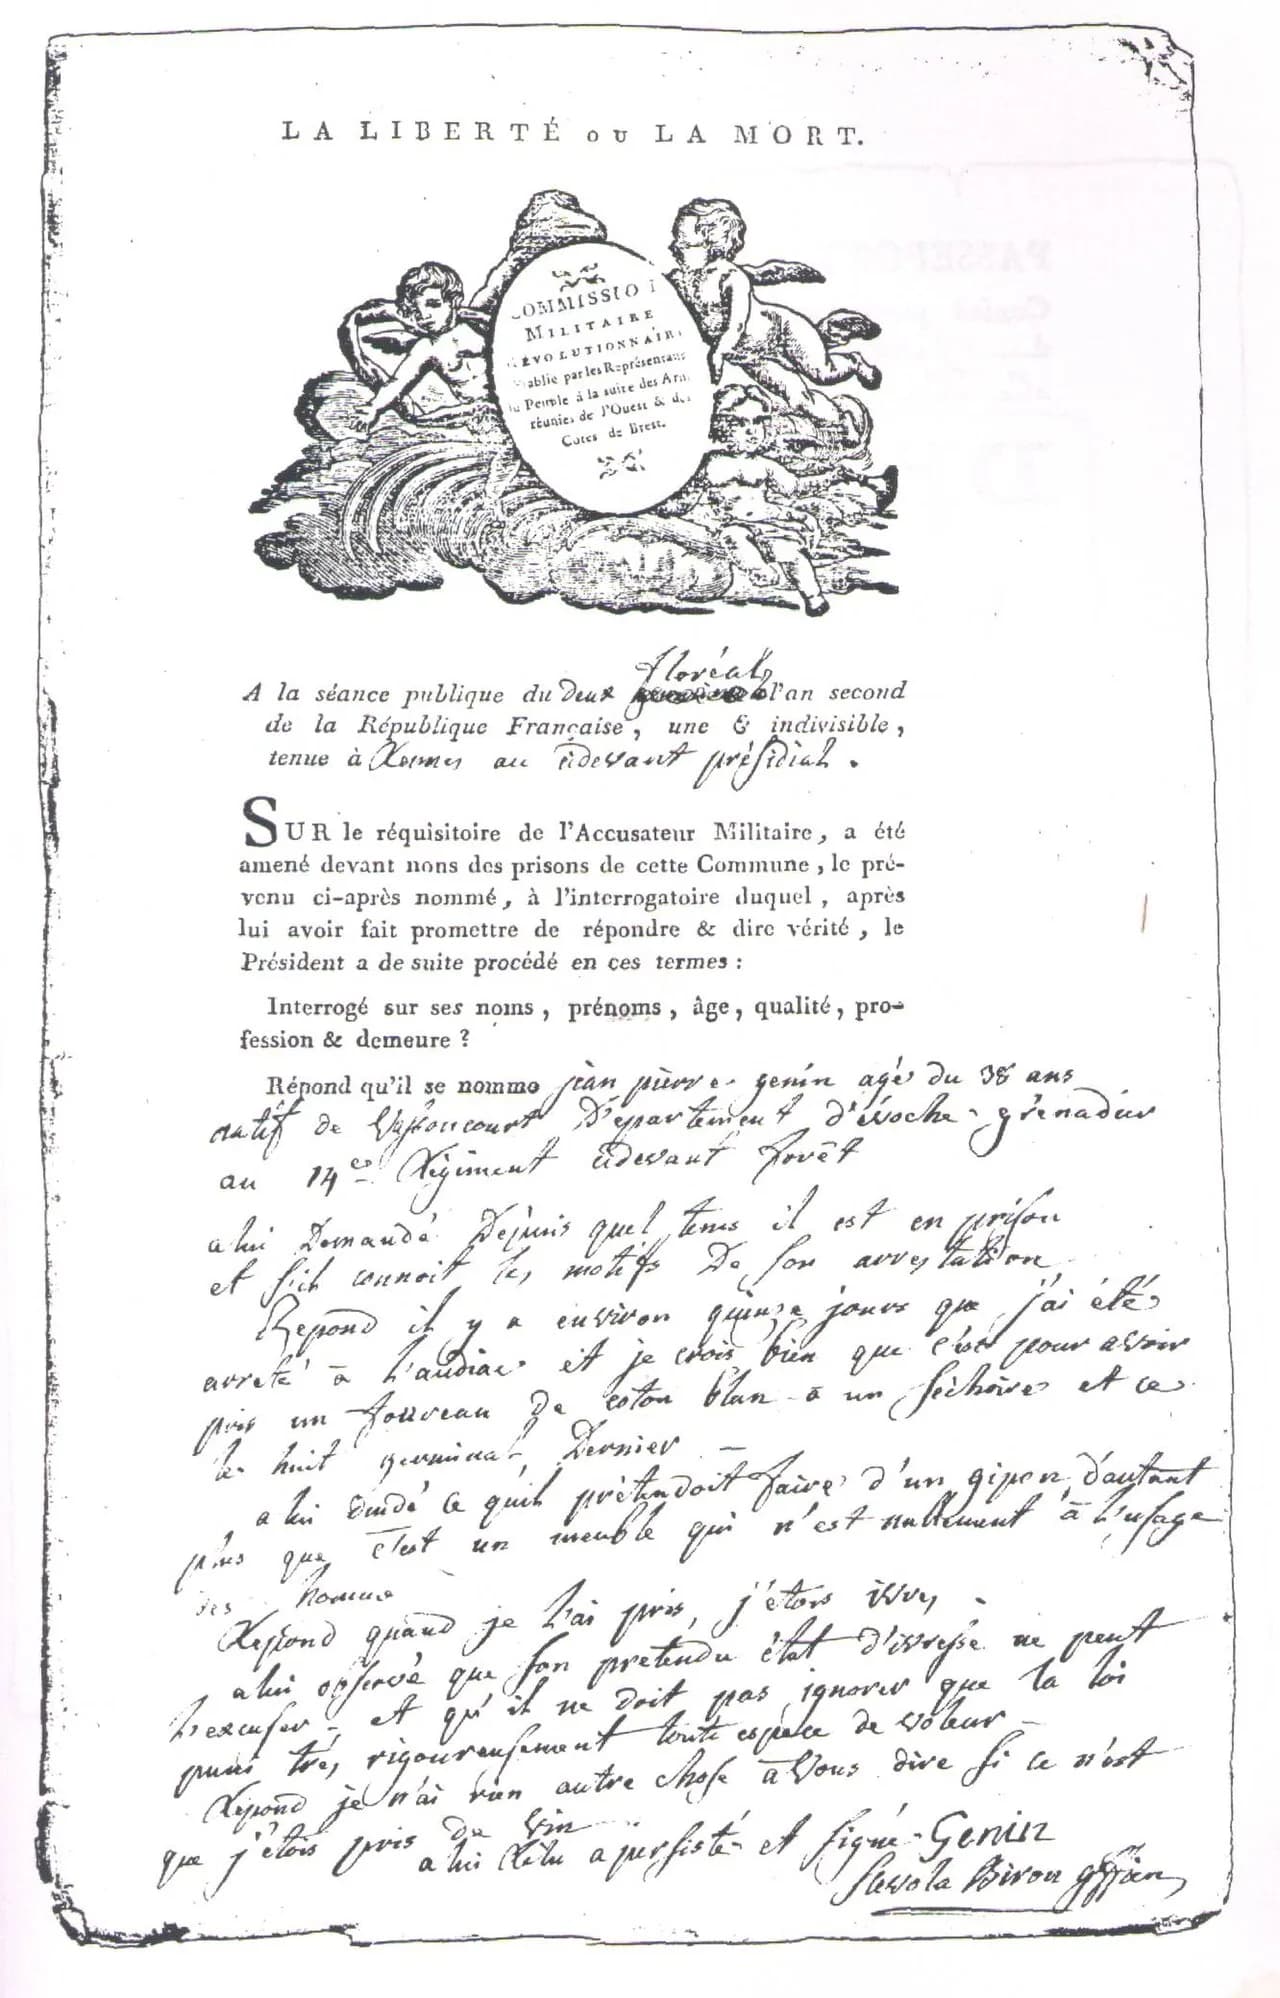 LA LIBERTÉ OU LA MORT.
COMMISSIO
MILITAIRE
RÉVOLUTIONNAIRE
établie par les Représentans
du Peuple à la suite des Arm
réunies de l'Ouest & des
Côtes de Brest.
floréal
A la séance publique du Deux l'an second
de la République Française, une & indivisible,
tenue à Rennes au cidevant présidial.
SUR le réquisitoire de l'Accusateur Militaire, a été
amené devant nons des prisons de cette Commune, le pré-
venu ci-après nommé, à l'interrogatoire duquel, après
lui avoir fait promettre de répondre & dire vérité, le
Président a de suite procédé en ces termes :
Interrogé sur ses noms, prénoms, âge, qualité, pro-
fession & demeure ?
Répond qu'il se nomme jean pierre genin agé du 38 ans
natif de Departement grenadier
au 14e Régiment cidevant forêt
a lui Demandé Depuis quel tems il est en prison
et s'il connoit les motifs De son arrestation
Repond il y a environ quinze jours que j'ai été
arreté à Laudiac et je crois bien que c'est pour avoir
pris un fourreau de coton blan à un séchoire et ce
le huit germinal Dernier
a lui dmdé ce quil prétendoit faire d'un gipon, d'autant
plus que c'est un meuble qui n'est nullement à l'usage
des homme
Repond quand je l'ai pris, j'étois ivre,
a lui observé que son pretendu état d'ivresse ne peut
l'excuser et qu'il ne doit pas ignorer que la loi
puni très rigoureusement toute espece de voleur
Repond je n'ai rien autre chose à vous dire si ce n'est
que j'étois pris de vin
a lui Relu a persisté et signé Genin
Scevola Biron gffier